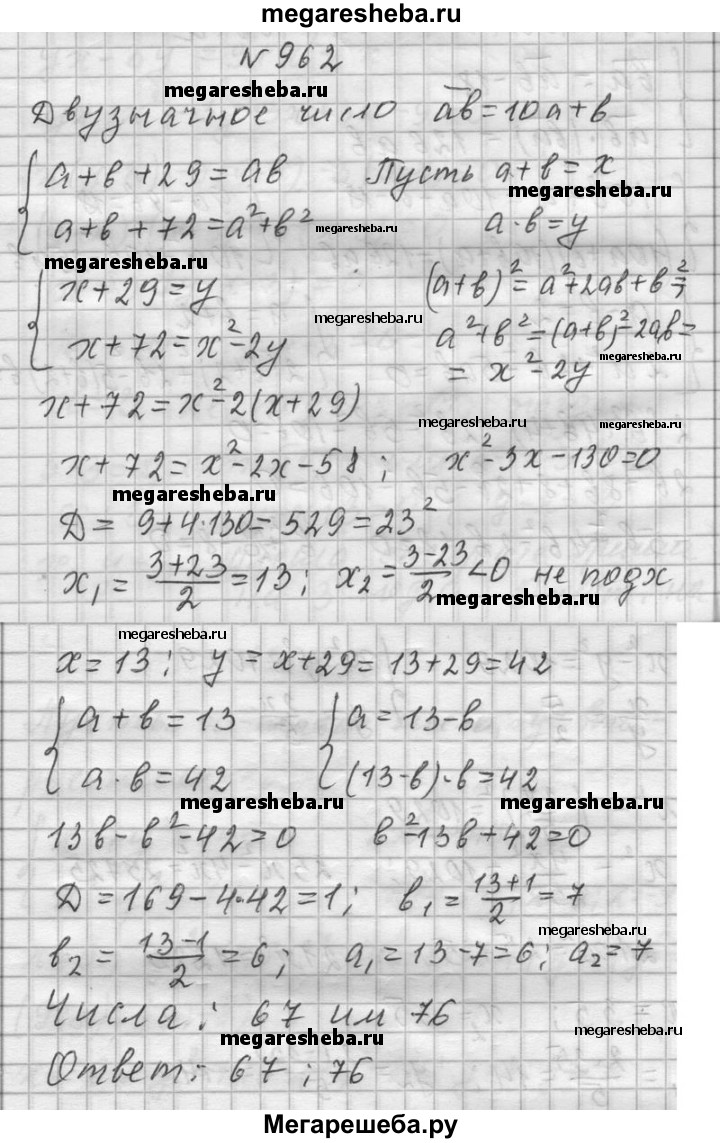 megaresheba.ru
N 962
megaresheba.ru
Двузначное число ab = 10a + b
a + b + 29 = ab Пусть a + b = x
megaresheba.ru
a + b + 72 = a² + b² megaresheba.ru a · b = y
megaresheba.ru
x + 29 = y (a + b)² = a² + 2ab + b² ⇒
megaresheba.ru
x + 72 = x² - 2y a² + b² = (a + b)² - 2ab =
megaresheba.ru
= x² - 2y
x + 72 = x² - 2(x + 29)
megaresheba.ru megaresheba.ru
x + 72 = x² - 2x - 58; x² - 3x - 130 = 0
megaresheba.ru
Д = 9 + 4·130 = 529 = 23²
x₁ = (3+23)/2 = 13; x₂ = (3-23)/2 < 0 не подх
megaresheba.ru
megaresheba.ru
x = 13; y = x + 29 = 13 + 29 = 42
a + b = 13 a = 13 - b
a · b = 42 (13 - b) · b = 42
megaresheba.ru megaresheba.ru
13b - b² - 42 = 0 b² - 13b + 42 = 0
Д = 169 - 4·42 = 1; b₁ = (13+1)/2 = 7
megaresheba.ru
b₂ = (13-1)/2 = 6; a₁ = 13 - 7 = 6; a₂ = 7
Числа: 67 им 76
megaresheba.ru megaresheba.ru
Ответ: 67; 76
Мегарешеба.ру